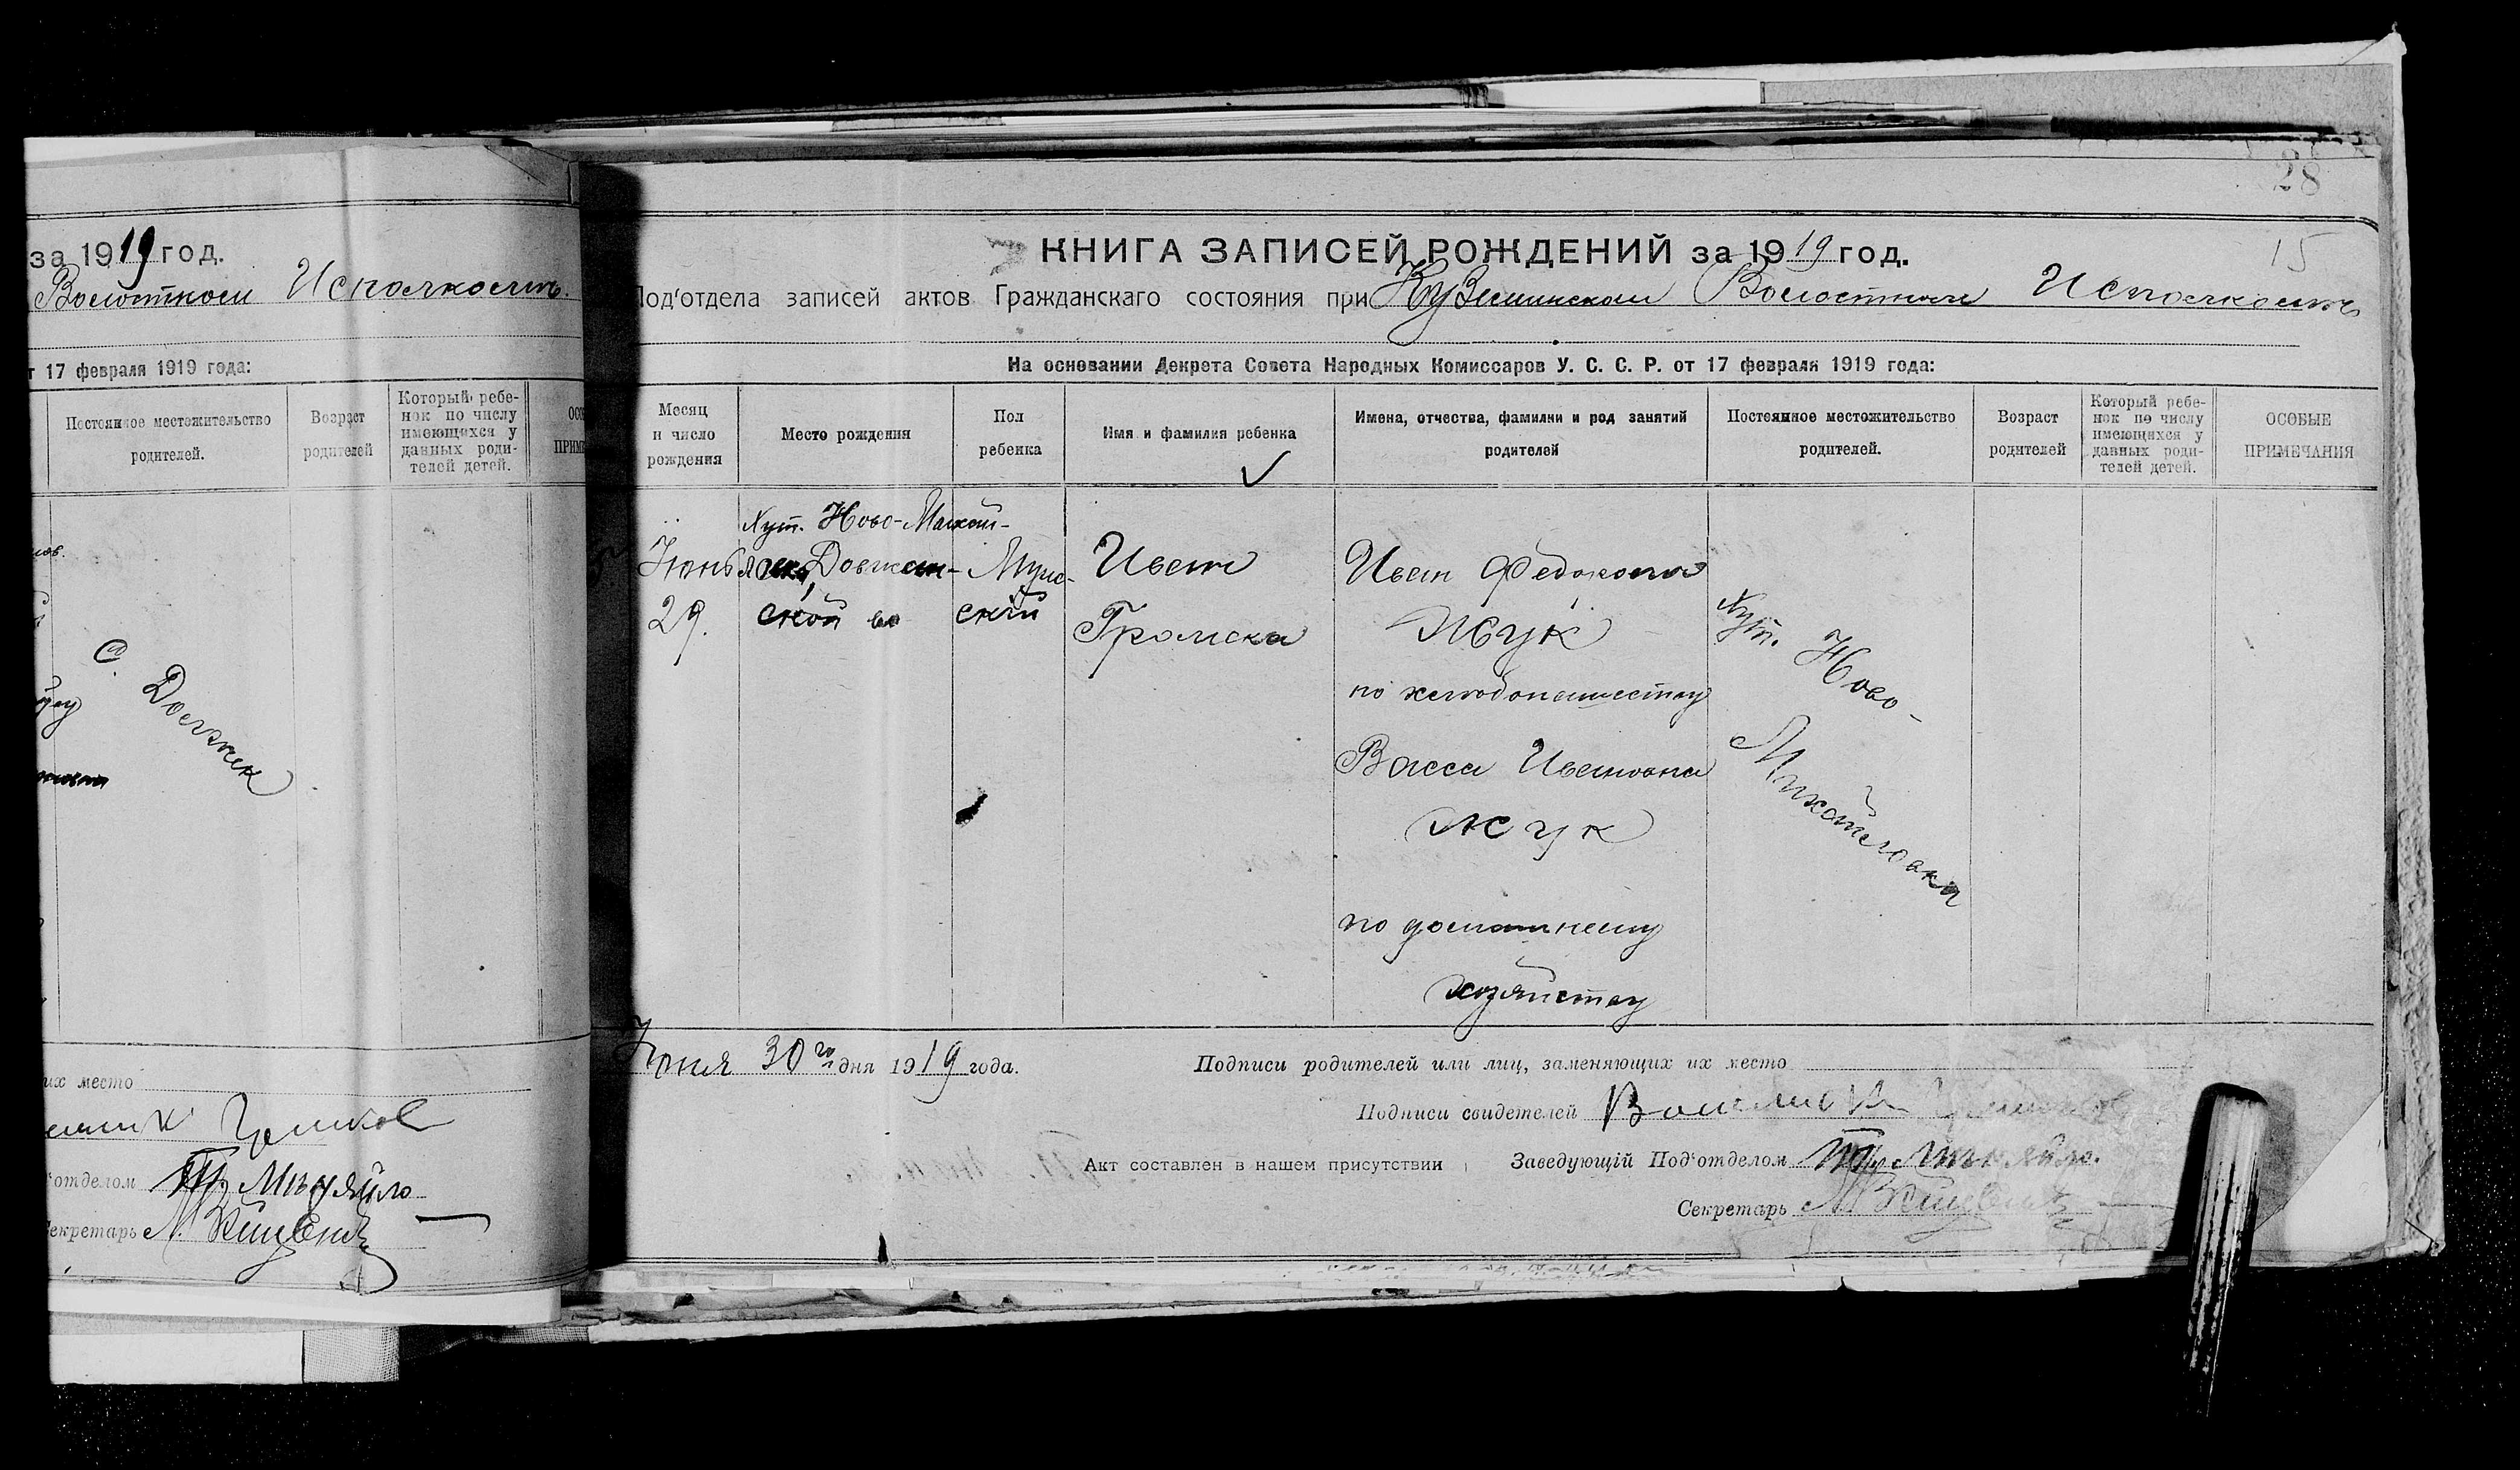 за 1919 год.
Волостном Исполкоме.
т 17 февраля 1919 года:
Постоянное местожительство родителей.
Возраст родителей
Который ребе-
нок по числу
имеющихся у
данных роди-
телей детей.
С. Должик
их место
отделом
Секретарь
28
15
КНИГА ЗАПИСЕЙ РОЖДЕНИЙ за 1919 год.
Под'отдела записей актов Гражданскаго состояния при Волостном Исполкоме
На основании Декрета Совета Народных Комиссаров У. С. С. Р. от 17 февраля 1919 года:
Месяц
и число
рождения
Место рождения
Пол
ребенка
Имя и фамилия ребенка
Имена, отчества, фамилии и род занятий
родителей
Постоянное местожительство
родителей.
Возраст
родителей
Который ребе-
нок по числу
имеющихся у
данных роди-
телей детей.
ОСОБЫЕ
ПРИМЕЧАНИЯ
Июнь
29.
Хут. Ново-Михай-
ской во
Муж-
ский
Иван
Иван
Жук
по хлебопашеству
Васса Ивановна
Жук
по домашнему
хозяйству
Хут. Ново-
Михайловка
Июня 30го дня 1919 года.
Подписи родителей или лиц, заменяющих их место
Подписи свидетелей
Акт составлен в нашем присутствии
Заведующій Под'отделом
Секретарь